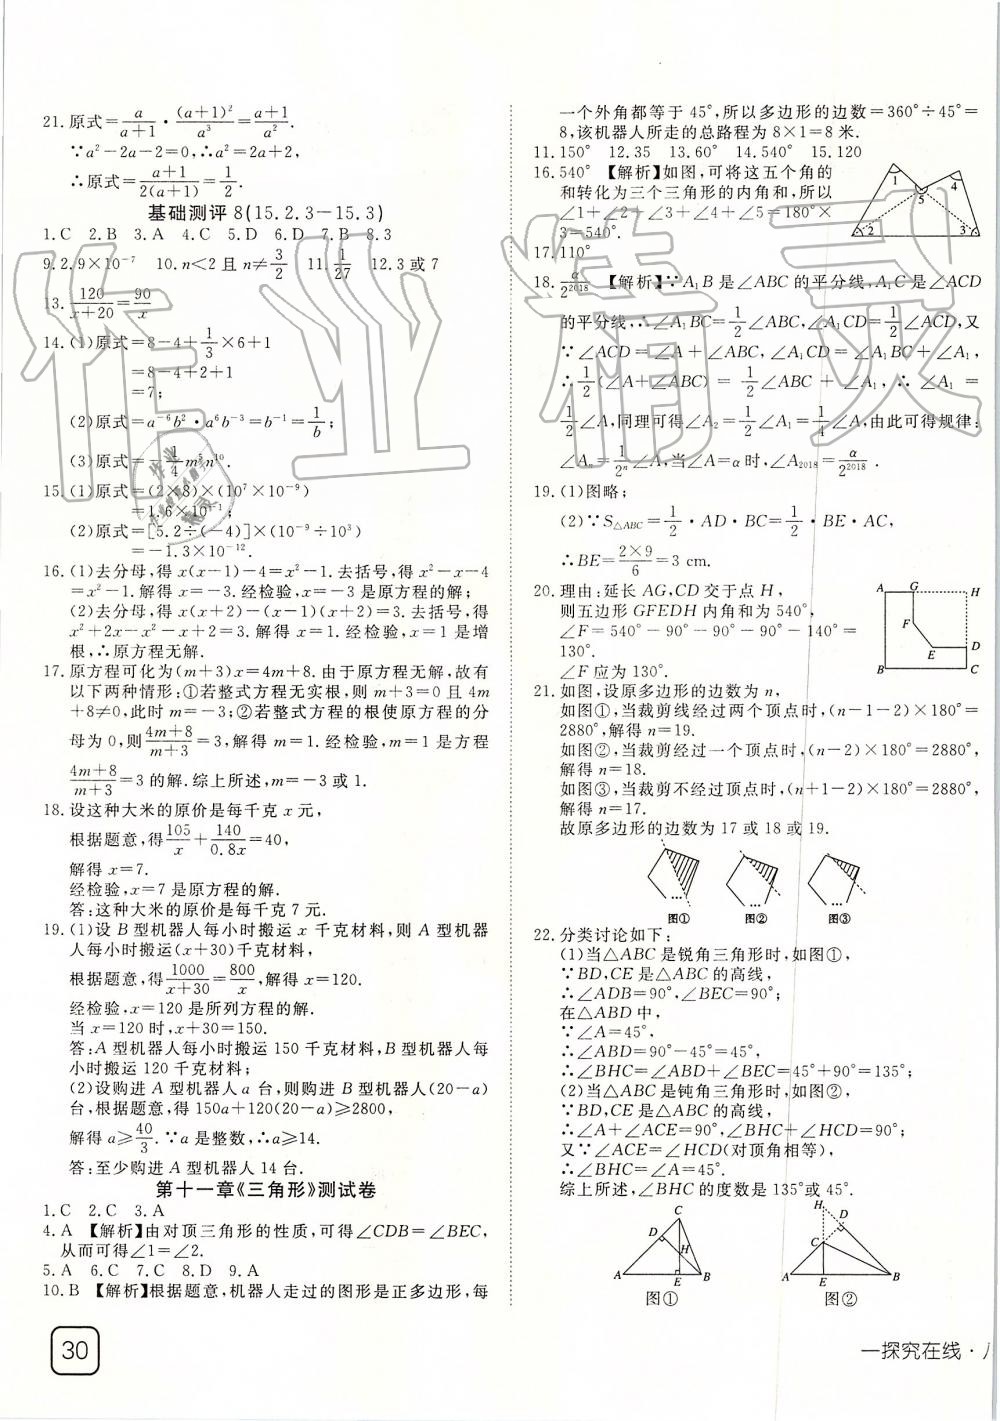 21.原式=a/(a+1)·(a+1)²/a³=(a+1)/a².
∵a²-2a-2=0,∴a²=2a+2,
∴原式=(a+1)/2(a+1)=1/2.
基础测评8(15.2.3-15.3)
1.C 2.B 3.A 4.C 5.D 6.D 7.B 8.3
9.2.9×10⁻⁷ 10.n<2且n≠3/2 11.1/27 12.3或7
13.120/(x+20)=90/x
14.(1)原式=8-4+1/3×6+1
=8-4+2+1
=7;
(2)原式=a⁻⁶b²·a⁶b⁻³=b⁻¹=1/b;
(3)原式=-1/4m⁵n¹⁰.
15.(1)原式=(2×8)×(10⁷×10⁻⁹)
=1.6×10⁻¹;
(2)原式=[5.2÷(-4)]×(10⁻⁹÷10³)
=-1.3×10⁻¹².
16.(1)去分母,得x(x-1)-4=x²-1.去括号,得x²-x-4
=x²-1.解得x=-3.经检验,x=-3是原方程的解;
(2)去分母,得x(x+2)-(x-1)(x+2)=3.去括号,得
x²+2x-x²-x+2=3.解得x=1.经检验,x=1是增
根,∴原方程无解.
17.原方程可化为(m+3)x=4m+8.由于原方程无解,故有
以下两种情形:①若整式方程无实根,则m+3=0且4m
+8≠0,此时m=-3;②若整式方程的根使原方程的分
母为0,则(4m+8)/(m+3)=3,解得m=1.经检验,m=1是方程
(4m+8)/(m+3)=3的解.综上所述,m=-3或1.
18.设这种大米的原价是每千克x元,
根据题意,得105/x+140/0.8x=40,
解得x=7.
经检验,x=7是原方程的解.
答:这种大米的原价是每千克7元.
19.(1)设B型机器人每小时搬运x千克材料,则A型机器
人每小时搬运(x+30)千克材料,
根据题意,得1000/(x+30)=800/x,解得x=120.
经检验,x=120是所列方程的解.
当x=120时,x+30=150.
答:A型机器人每小时搬运150千克材料,B型机器人每
小时搬运120千克材料;
(2)设购进A型机器人a台,则购进B型机器人(20-a)
台,根据题意,得150a+120(20-a)≥2800,
解得a≥40/3.∵a是整数,∴a≥14.
答:至少购进A型机器人14台.
第十一章《三角形》测试卷
1.C 2.C 3.A
4.A 【解析】由对顶三角形的性质,可得∠CDB=∠BEC,
从而可得∠1=∠2.
5.A 6.C 7.C 8.D 9.A
10.B 【解析】根据题意,机器人走过的图形是正多边形,每
30
一个外角都等于45°,所以多边形的边数=360°÷45°=
8,该机器人所走的总路程为8×1=8米.
11.150° 12.35 13.60° 14.540° 15.120
16.540° 【解析】如图,可将这五个角的
和转化为三个三角形的内角和,所以
∠1+∠2+∠3+∠4+∠5=180°×
3=540°.
1 4 5 2 3
17.110°
18.α/2²⁰¹⁸ 【解析】∵A₁B是∠ABC的平分线,A₁C是∠ACD
的平分线,∴∠A₁BC=1/2∠ABC,∠A₁CD=1/2∠ACD,又
∵∠ACD=∠A+∠ABC,∠A₁CD=∠A₁BC+∠A₁,
∴1/2(∠A+∠ABC)=1/2∠ABC+∠A₁,∴∠A₁=
1/2∠A,同理可得∠A₂=1/2∠A₁=1/4∠A,由此可得规律:
∠Aₙ=1/2ⁿ∠A,当∠A=α时,∠A₂₀₁₈=α/2²⁰¹⁸.
19.(1)图略;
(2)∵S△ABC=1/2·AD·BC=1/2·BE·AC,
∴BE=2×9/6=3 cm.
20.理由:延长AG,CD交于点H,
则五边形GFEDH内角和为540°,
∠F=540°-90°-90°-90°-140°=
130°.
∠F应为130°.
A G H F E D B C
21.如图,设原多边形的边数为n,
如图①,当裁剪线经过两个顶点时,(n-1-2)×180°=
2880°,解得n=19.
如图②,当裁剪经过一个顶点时,(n-2)×180°=2880°,
解得n=18.
如图③,当裁剪不经过顶点时,(n+1-2)×180°=2880°,
解得n=17.
故原多边形的边数为17或18或19.
… … …
图① 图② 图③
22.分类讨论如下:
(1)当△ABC是锐角三角形时,如图①,
∵BD,CE是△ABC的高线,
∴∠ADB=90°,∠BEC=90°;
在△ABD中,
∵∠A=45°,
∴∠ABD=90°-45°=45°,
∴∠BHC=∠ABD+∠BEC=45°+90°=135°;
(2)当△ABC是钝角三角形时,如图②,
∵BD,CE是△ABC的高线,
∴∠A+∠ACE=90°,∠BHC+∠HCD=90°;
又∵∠ACE=∠HCD(对顶角相等),
∴∠BHC=∠A=45°.
综上所述,∠BHC的度数是135°或45°.
C D H A E B
H D C A E B
图① 图②
一探究在线·
作业精灵